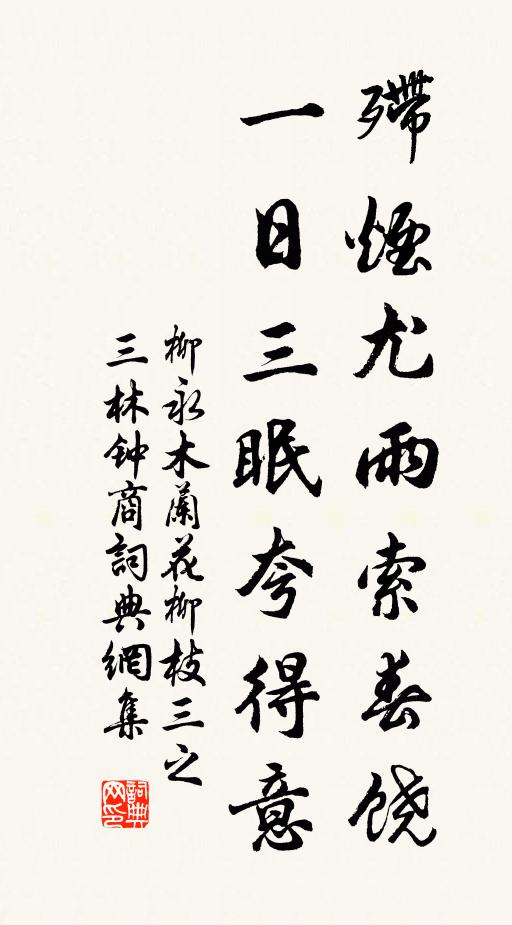 殢煙尤雨索春饶
一日三眠夸得意
柳永木蘭花柳枝三之
三林钟商詞典網集
詞典
网印